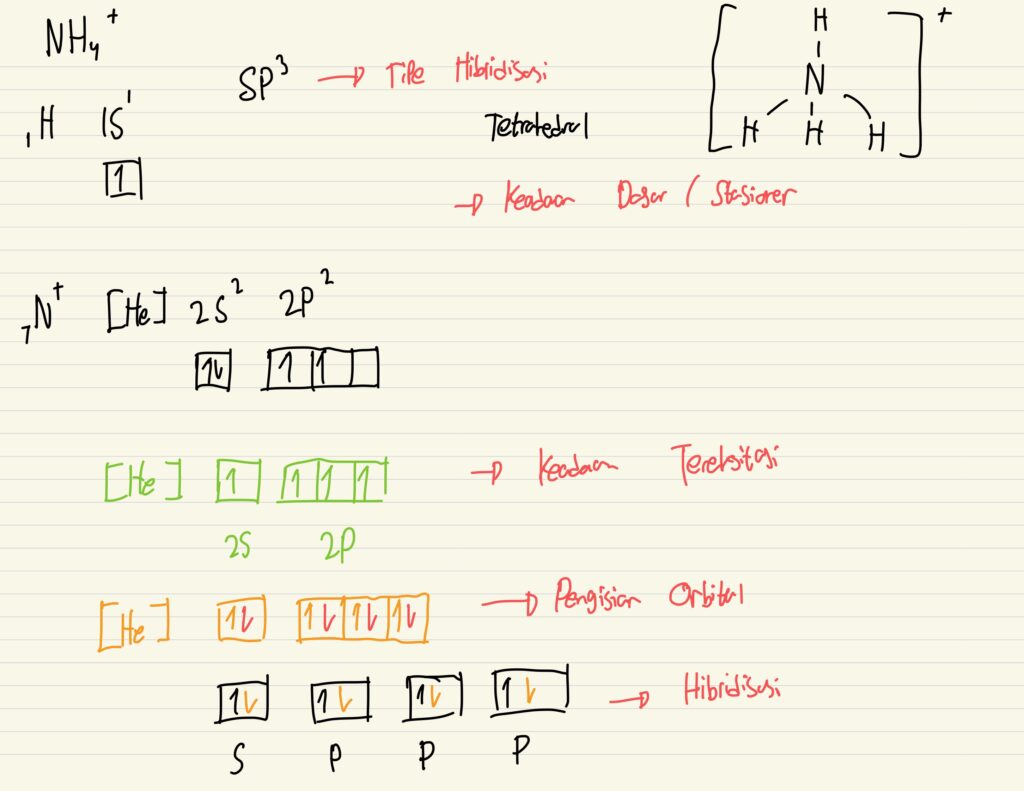 NH₄⁺
SP³ → Tipe Hibridisasi
Tetrahedral
[H
N
H H H]⁺
₁H 1S¹
1
→ Keadaan Dasar / Stasioner
₇N⁺ [He] 2S² 2P²
1⇂ 1 1
[He] 1 1 1 1 → Keadaan Tereksitasi
2S 2P
[He] 1⇂ 1⇂ 1⇂ 1⇂ → Pengisian Orbital
1⇂ 1⇂ 1⇂ 1⇂ → Hibridisasi
S P P P